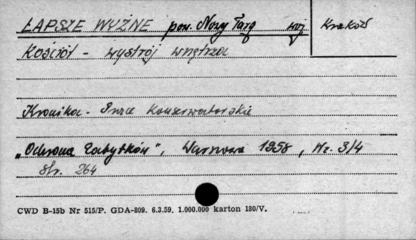 ŁAPSZE WYŻNE pow. Nowy Targ woj Kraków
Kościół - wystrój wnętrza
Kronika - Prace konserwatorskie
„Ochrona Zabytków", Warszawa 1958, Nr. 3/4
Str. 264
CWD B-15b Nr 515/P. GDA-809. 6.3.59. 1.000.000 karton 180/V.